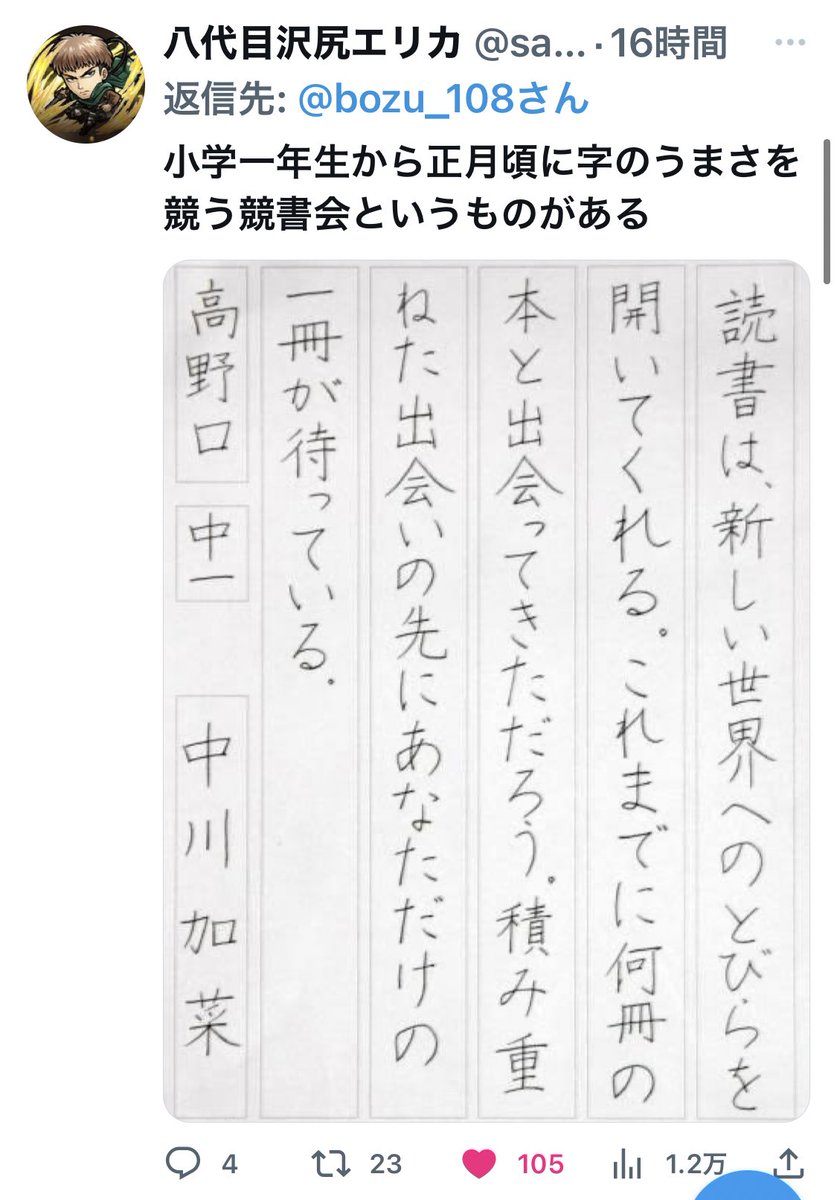 八代目沢尻エリカ @sa...·16時間
返信先: @bozu_108さん
小学一年生から正月頃に字のうまさを
競う競書会というものがある
読書は、新しい世界へのとびらを
開いてくれる。これまでに何冊の
本と出会ってきただろう。積み重
ねた出会いの先にあなただけの
一冊が待っている。
高野口 中一 中川加菜
4 23 105 1.2万